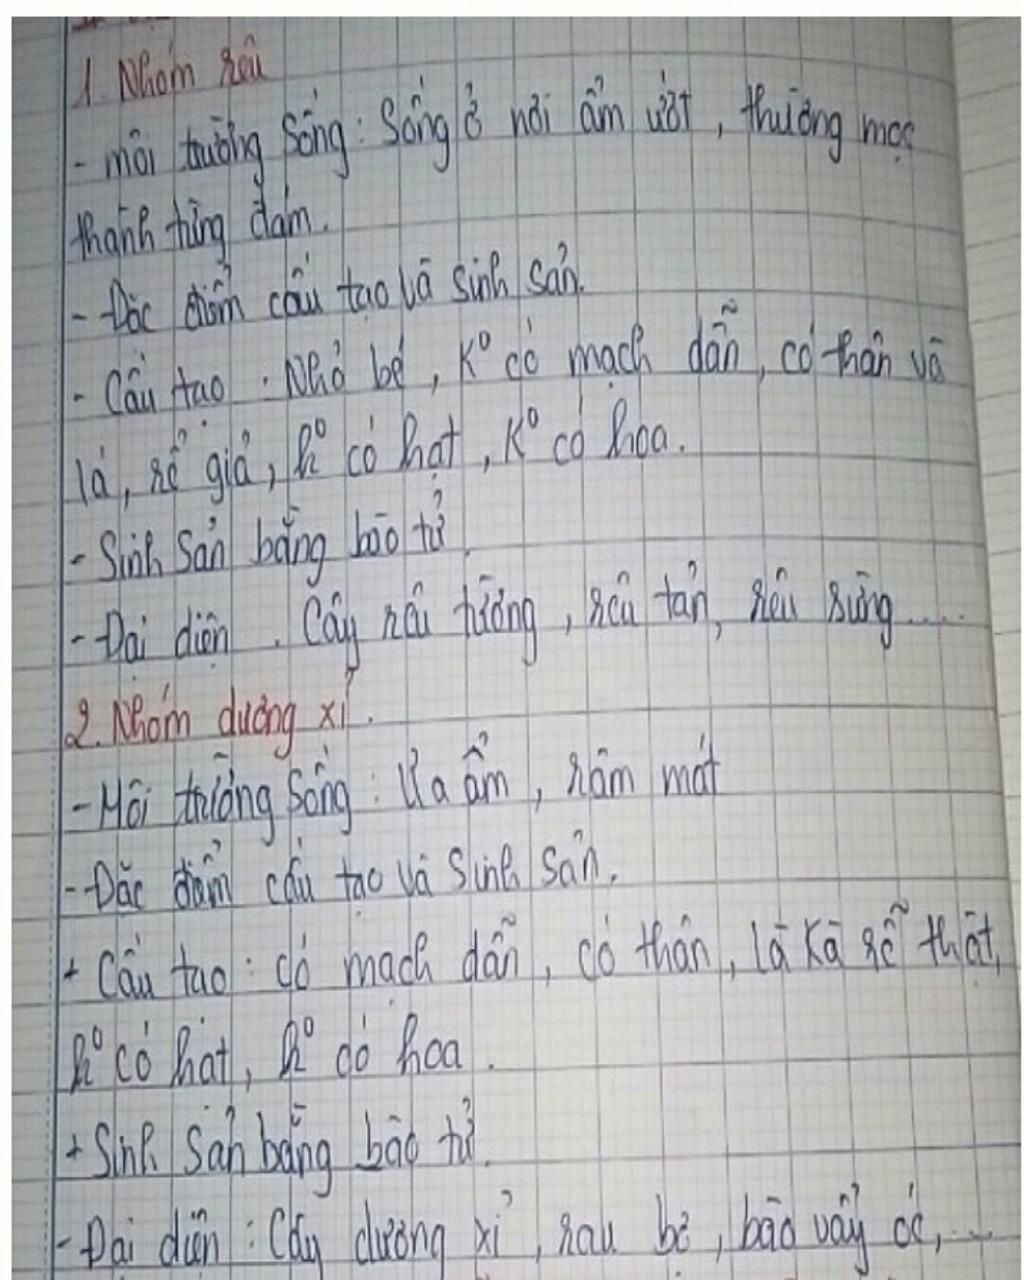 1. Nhóm rêu
- môi trường sống: Sống ở nơi ẩm ướt, thường mọc
thành từng đám.
- Đặc điểm cấu tạo và sinh sản.
- Cấu tạo: Nhỏ bé, K° có mạch dẫn, có thân và
lá, rễ giả, k° có hạt, K° có hoa.
- Sinh sản bằng bào tử.
- Đại diện. Cây rêu tường, rêu tản, rêu sừng.....
2. Nhóm dương xỉ.
- Môi trường sống: Ưa ẩm, râm mát
- Đặc điểm cấu tạo và Sinh sản.
+ Cấu tạo: có mạch dẫn, có thân, lá và rễ thật,
k° có hạt, k° có hoa.
+ Sinh sản bằng bào tử.
- Đại diện: Cây dương xỉ, rau bợ, bão vẩy ốc,...